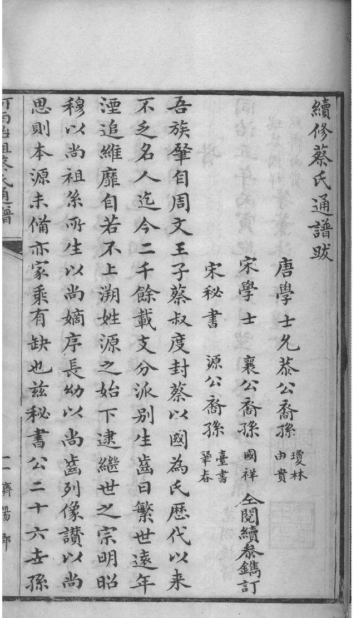 續修蔡氏通譜跋
唐學士允恭公裔孫 瓊林 由貴
宋學士 襄公裔孫 國祥 仝閱續叅鐫訂
宋秘書 源公裔孫 臺書 華春
吾族肇自周文王子蔡叔度封蔡以國為氏歷代以来
不乏名人迄今二千餘載支分派别生齒日繁世遠年
湮追維靡自若不上溯姓源之始下逮繼世之宗明昭
穆以尚祖系所生以尚嫡序長幼以尚齒列像讚以尚
思則本源未備亦家乘有缺也兹秘書公二十六世孫
蔡氏通譜
一 濟陽郡